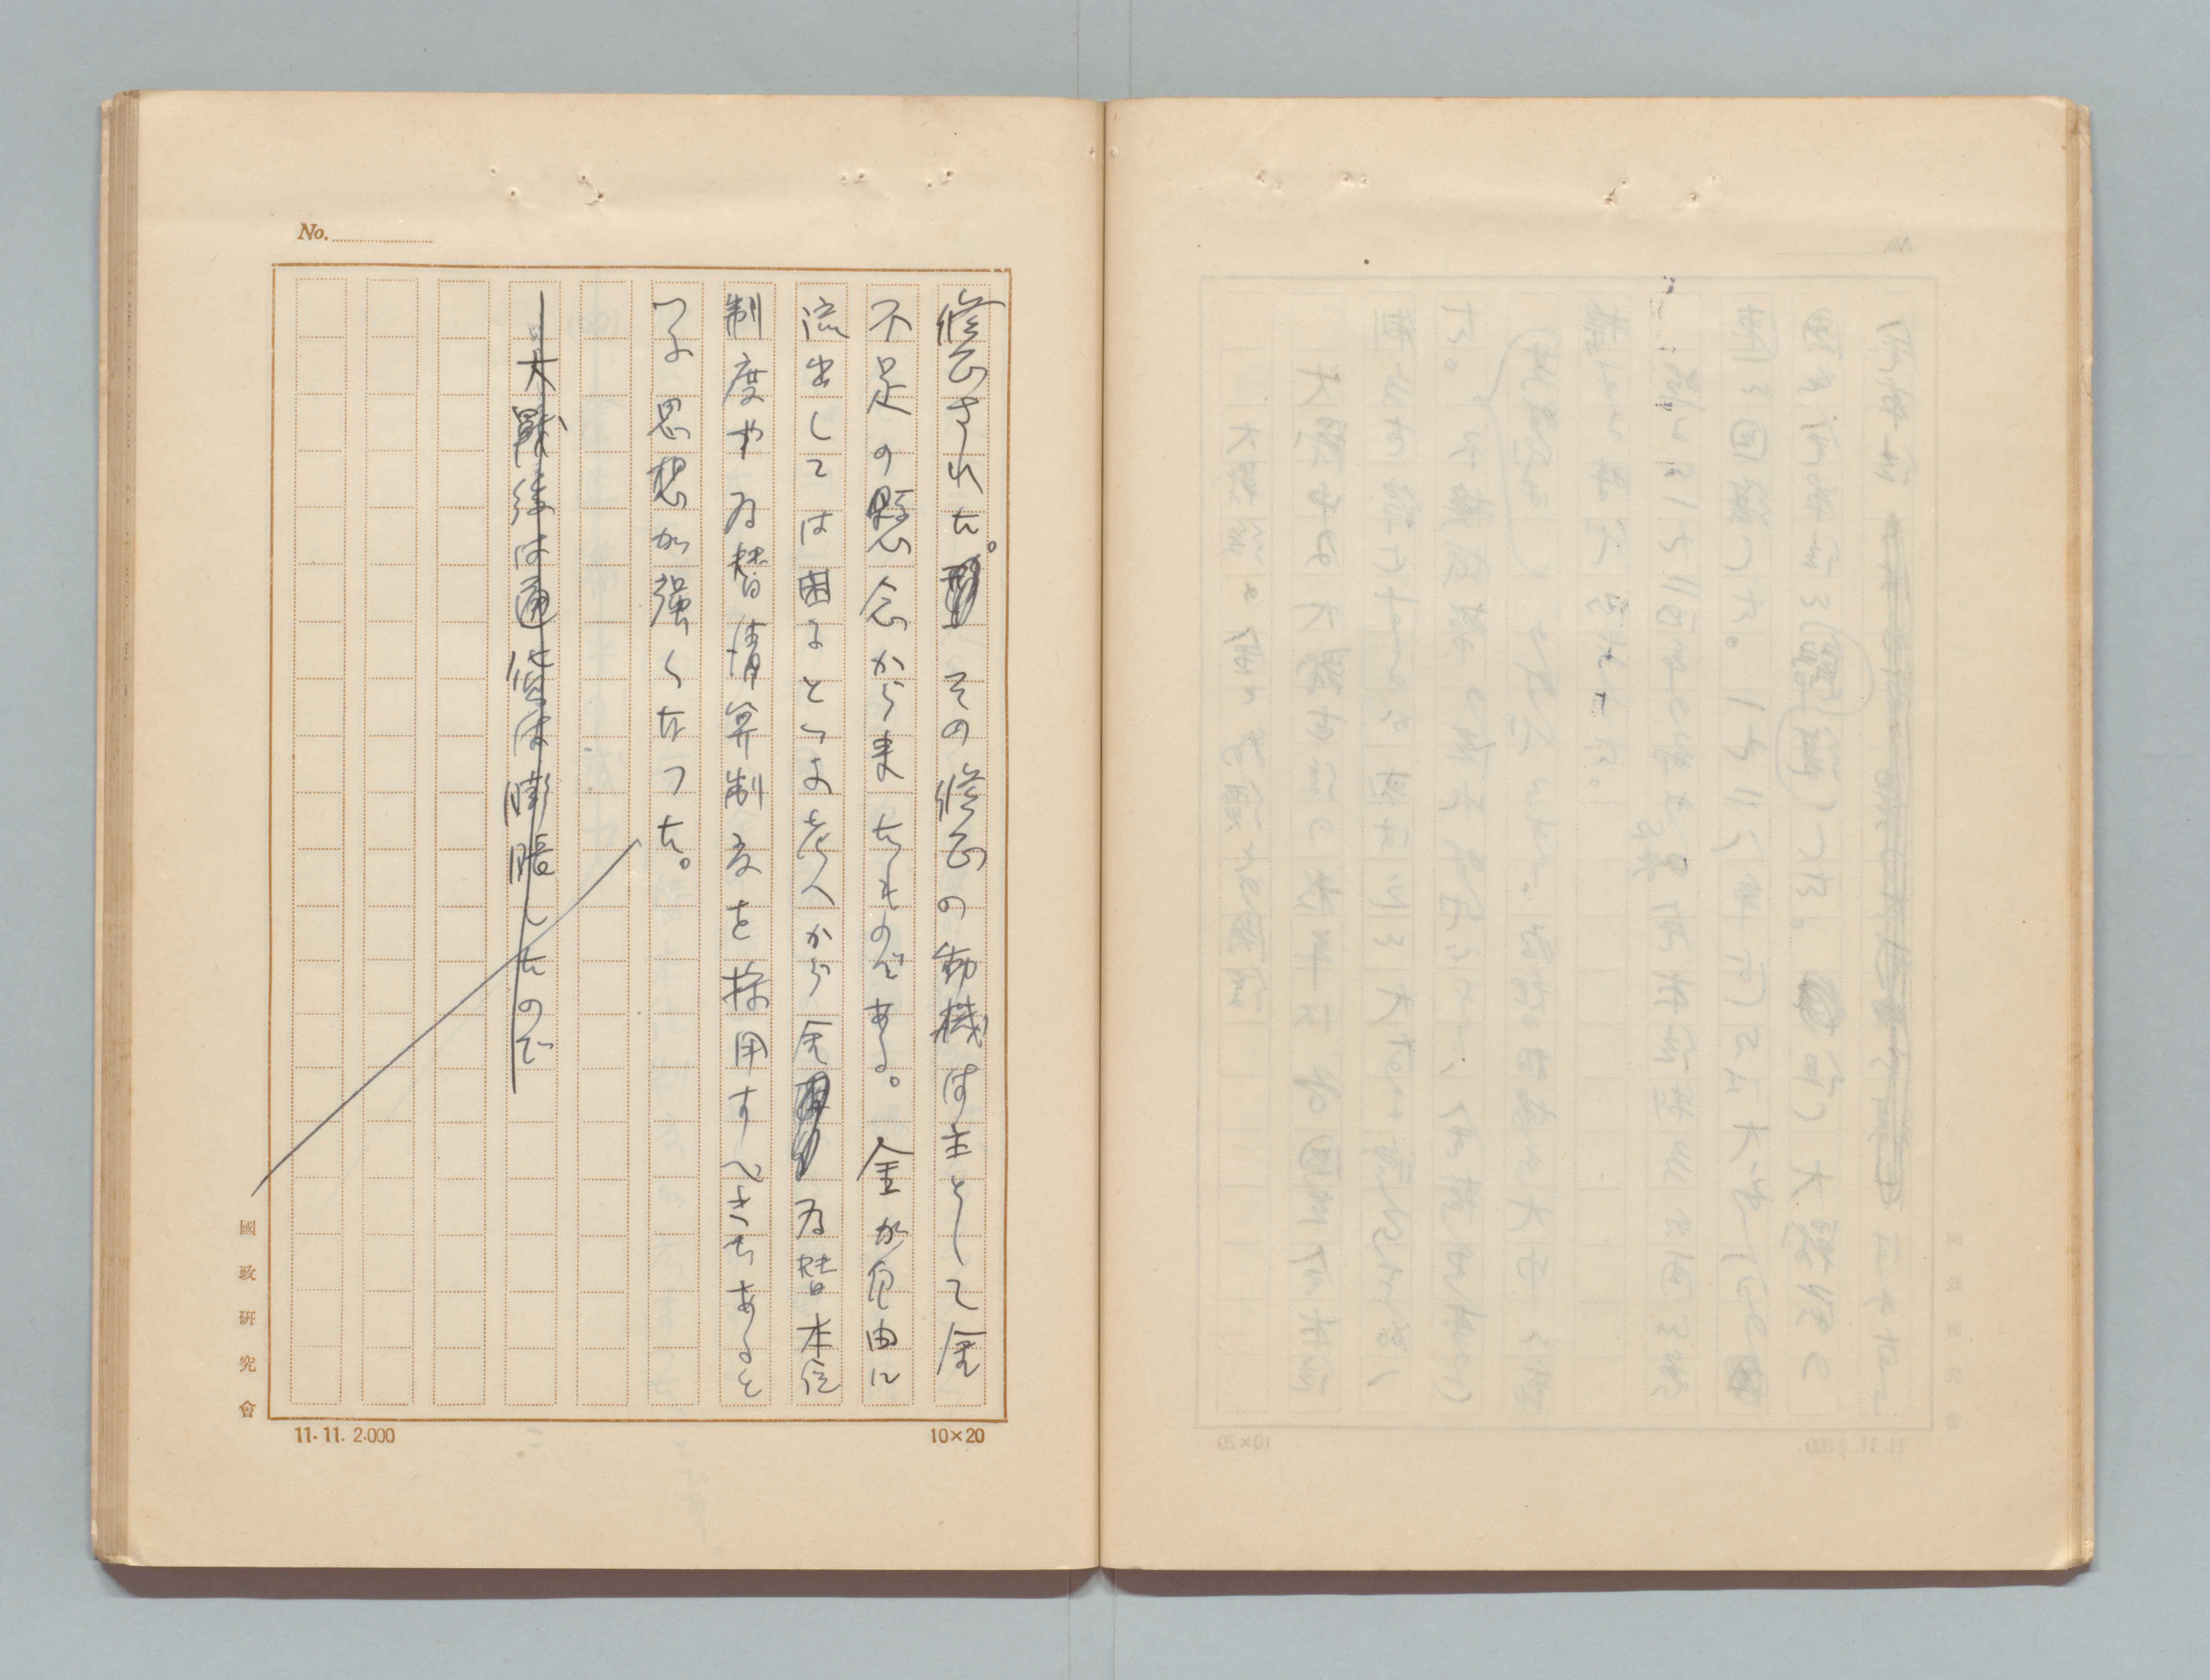 No.
修正された。その修正の動機は主として金
不足の懸念から来たものである。金が自由に
流出しては困るといふ考へから金為替本位
制度や為替清算制度を採用すべきであると
いふ思想が強くなつた。
大戰後は通貨は膨脹したので
國政研究會
11.11.2.000
10×20